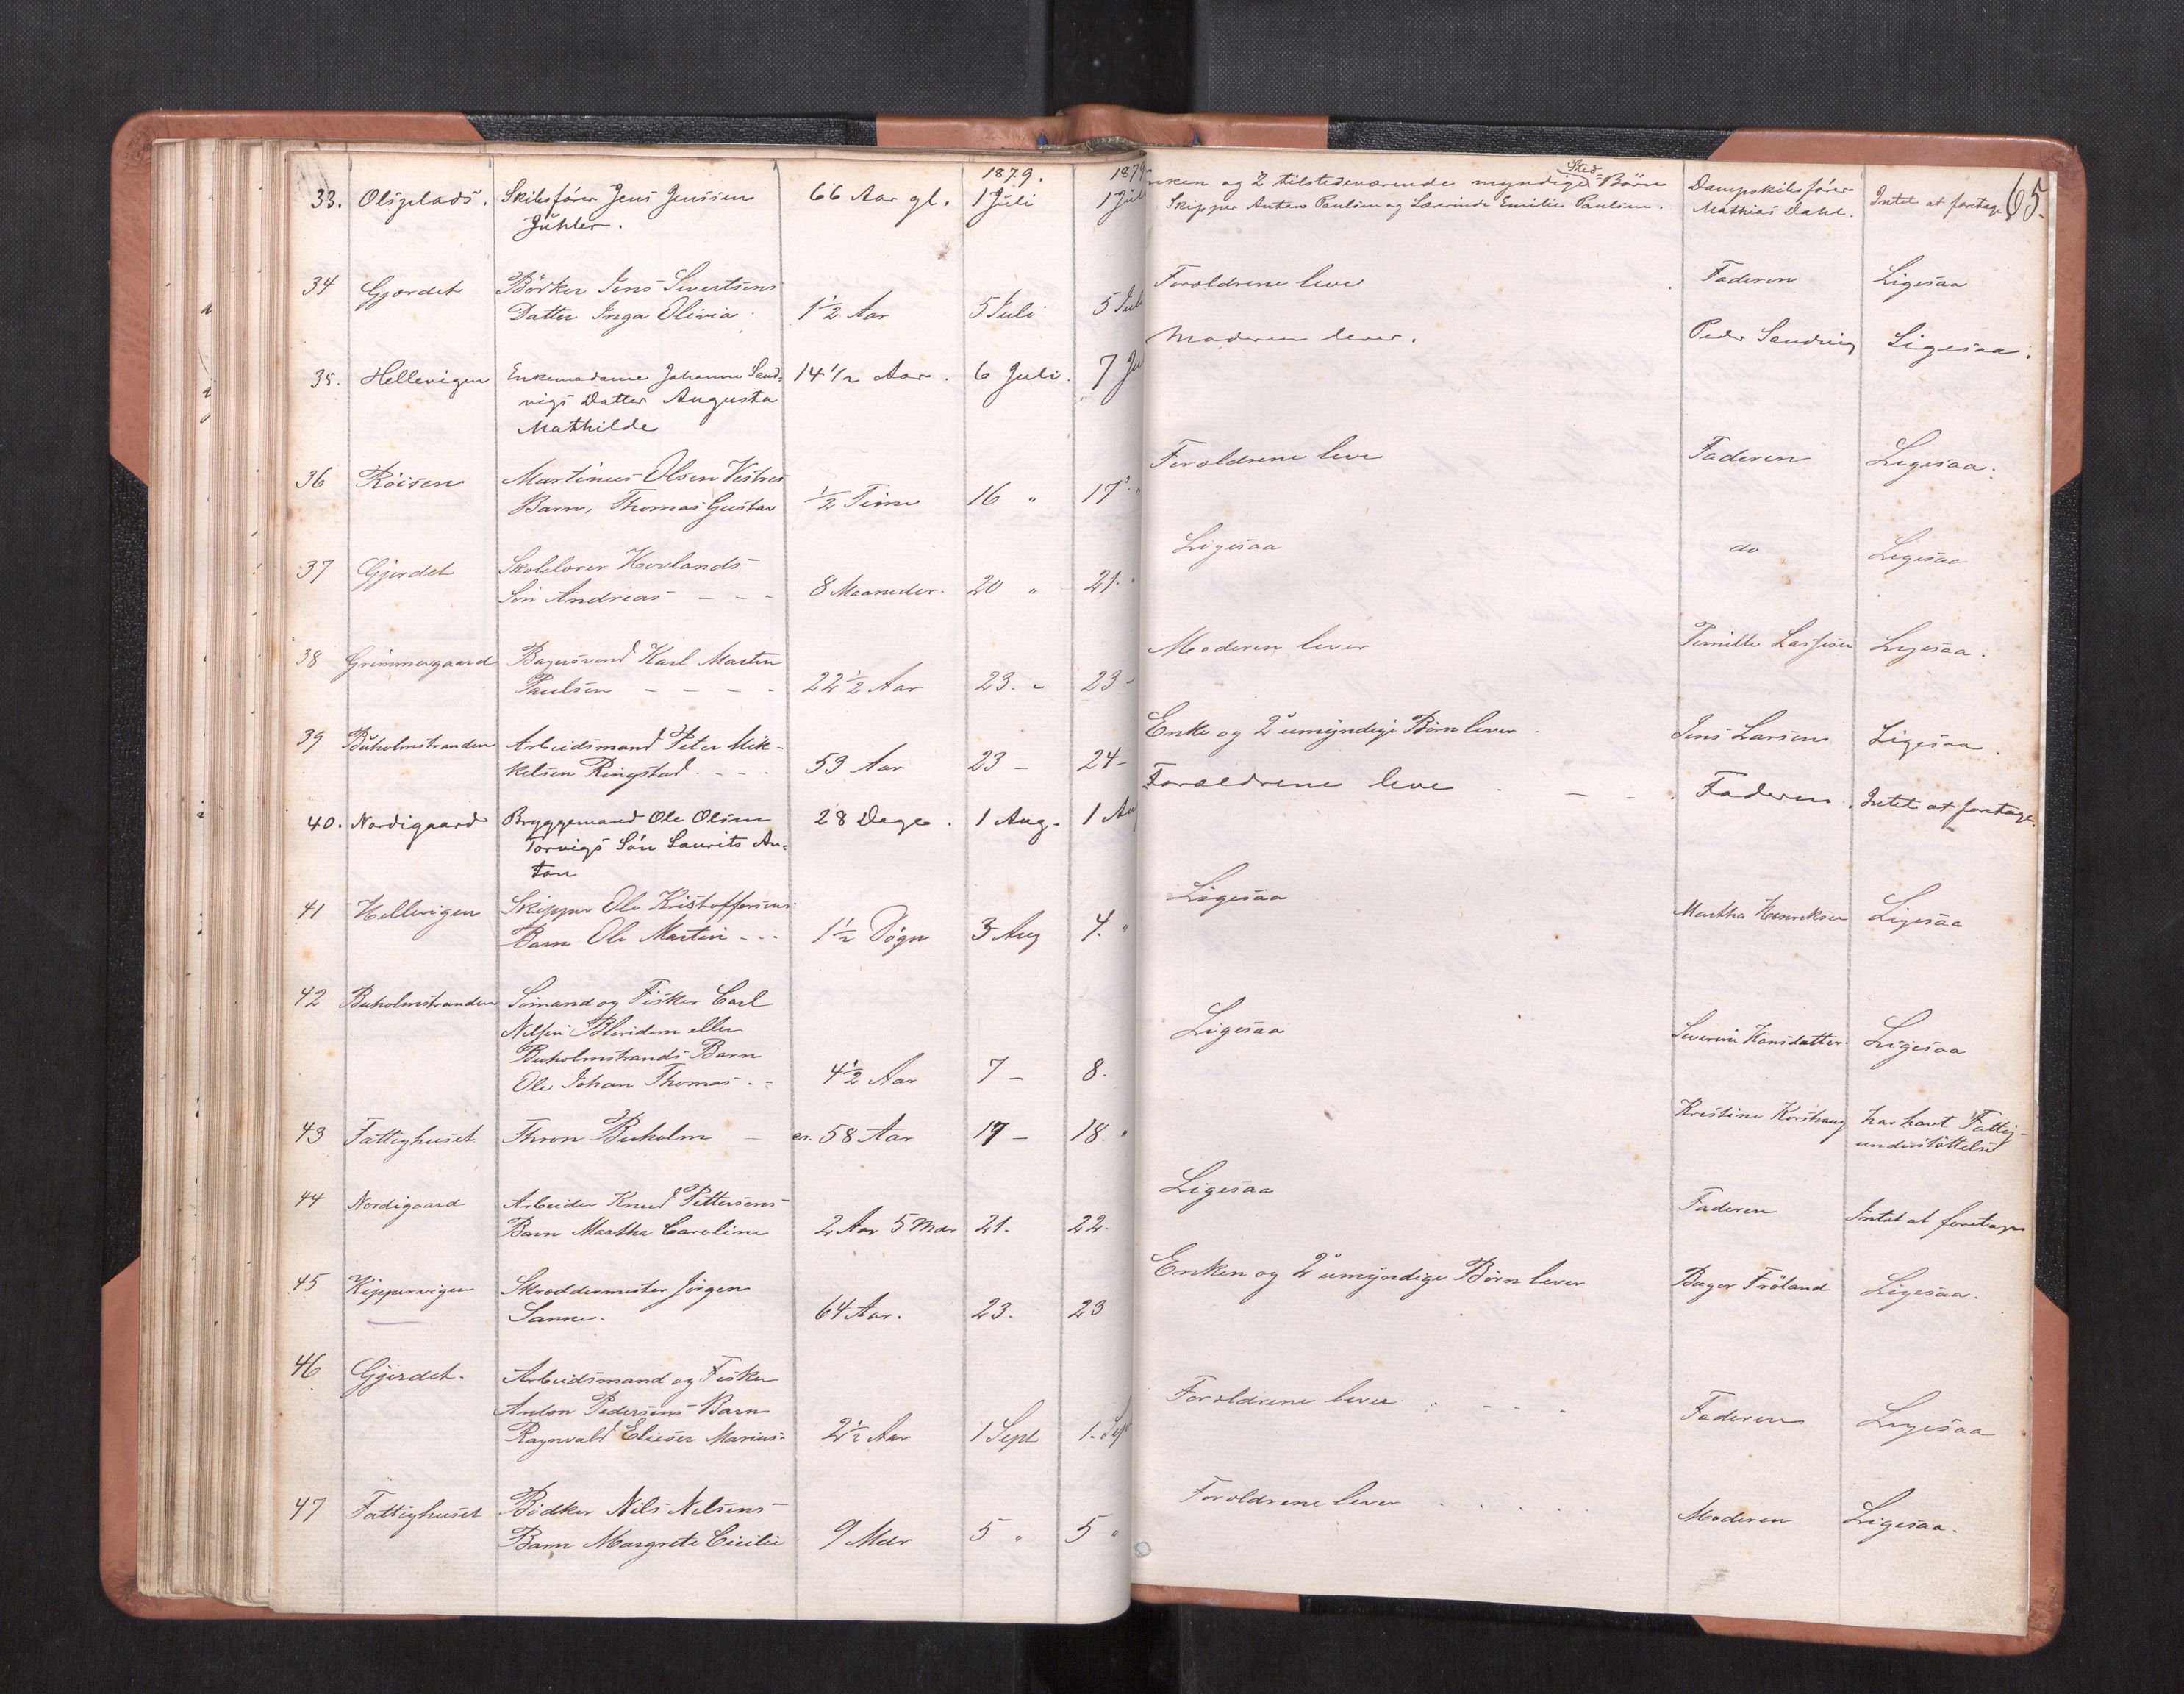 1879. 1879
33. Olsplads. Skibsfører Jens Jenssen 66 Aar gl. 1 Juli 1 Jul
Jühler.
nken og 2 tilstedeværende myndige Sted-Børn Dampskibsfører Intet at foretage 65.
Skipper Antaro Paulsen og Lærerinde Emilie Paulsen. Mathias Dahl.
34 Gjærdet Bödker Jens Sivertsens
Datter Inga Olivia. 1½ Aar 5 Juli 5 Jul
Forældrene leve Faderen Ligesaa
35. Hellevigen Enkemadame Johanne Sand- 14 1/2 Aar. 6 Juli. 7 Ju
vigs Datter Augusta
Mathilde
Moderen lever. Peder Sandvig Ligesaa.
36 Röisen Martinus Olsen Vestres
Barn, Thomas Gustav ½ Time 16 " 17 "
Forældrene leve Faderen Ligesaa.
37 Gjerdet Skolelærer Hovlands
Sön Andreas - - - 8 Maaneder. 20 " 21. "
Ligesaa do Ligesaa
38 Grimmergaard Bagersvend Karl Martin
Paulsen - - - - 22½ Aar 23. " 23 -
Moderen lever Pernille Lassesen Ligesaa.
39 Buholmstranden Arbeidsmand Peter Mik-
kelsen Ringstad. - - - 53 Aar 23 - 24 -
Enke og 2 umyndige Børn lever Jens Larsen Ligesaa.
40. Nordigaard Bryggemand Ole Olsen 28 Dage. 1 Aug. 1 Au
Torvigs Sön Laurits An-
ton
Forældrene leve. - - . Faderen. Intet at foretage.
41 Hellevigen Skipper Ole Kristoffersens
Barn Ole Martin - - - 1½ Døgn 3 Aug 4. "
Ligesaa Martha Henriksen Ligesaa
42 Buholmstranden Sömand og Fisker Carl
Nilsen eller
Buholmstrands Barn
Ole Johan Thomas. - 4½ Aar 7 - 8.
Ligesaa Severine Hansdatter Ligesaa
43 Fattighuset Thron Buholm - cr. 58 Aar 17 - 18. "
Kristine Korshaug har havt Fattig-
understöttelse
44 Nordigaard Arbeider Knud Pettersens
Barn Martha Caroline 2 Aar 5 Mdr 21. 22.
Ligesaa Faderen Intet at foretage
45 Kippervigen Skræddermester Jörgen
Sanne. 64 Aar. 23. 23
Enken og 2 umyndige Börn lever Bager Fröland Ligesaa.
46 Gjerdet. Arbeidsmand og Fisker
Anton Pedersens Barn
Ragnvald Elieser Marius. 2½ Aar 1 Sept 1. Sep
Forældrene lever . - - - Faderen Ligesaa
47 Fattighuset Bödker Nils Nilsens
Barn Margrete Cicilie 9 Mdr 5 " 5 "
Forældrene lever . . . . . Moderen Ligesaa.